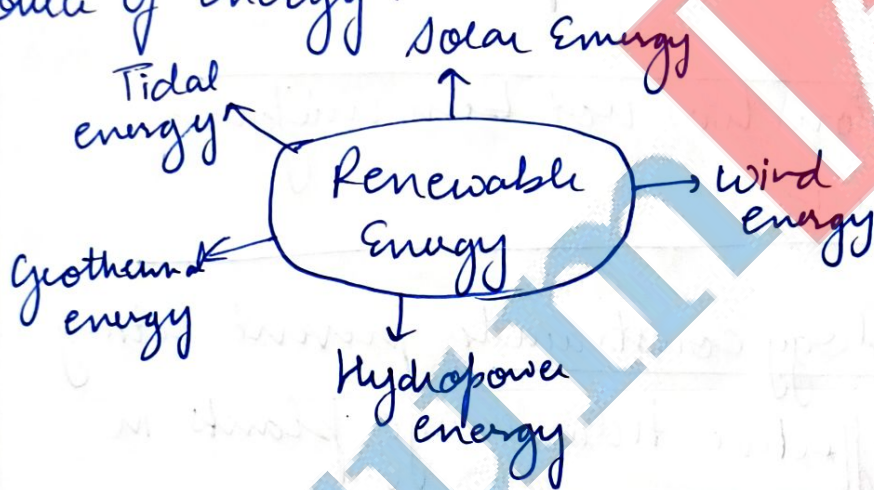 of energy
Solar Energy
Tidal
energy
Renewable
Energy
Wind
energy
Geothermal
energy
Hydropower
energy